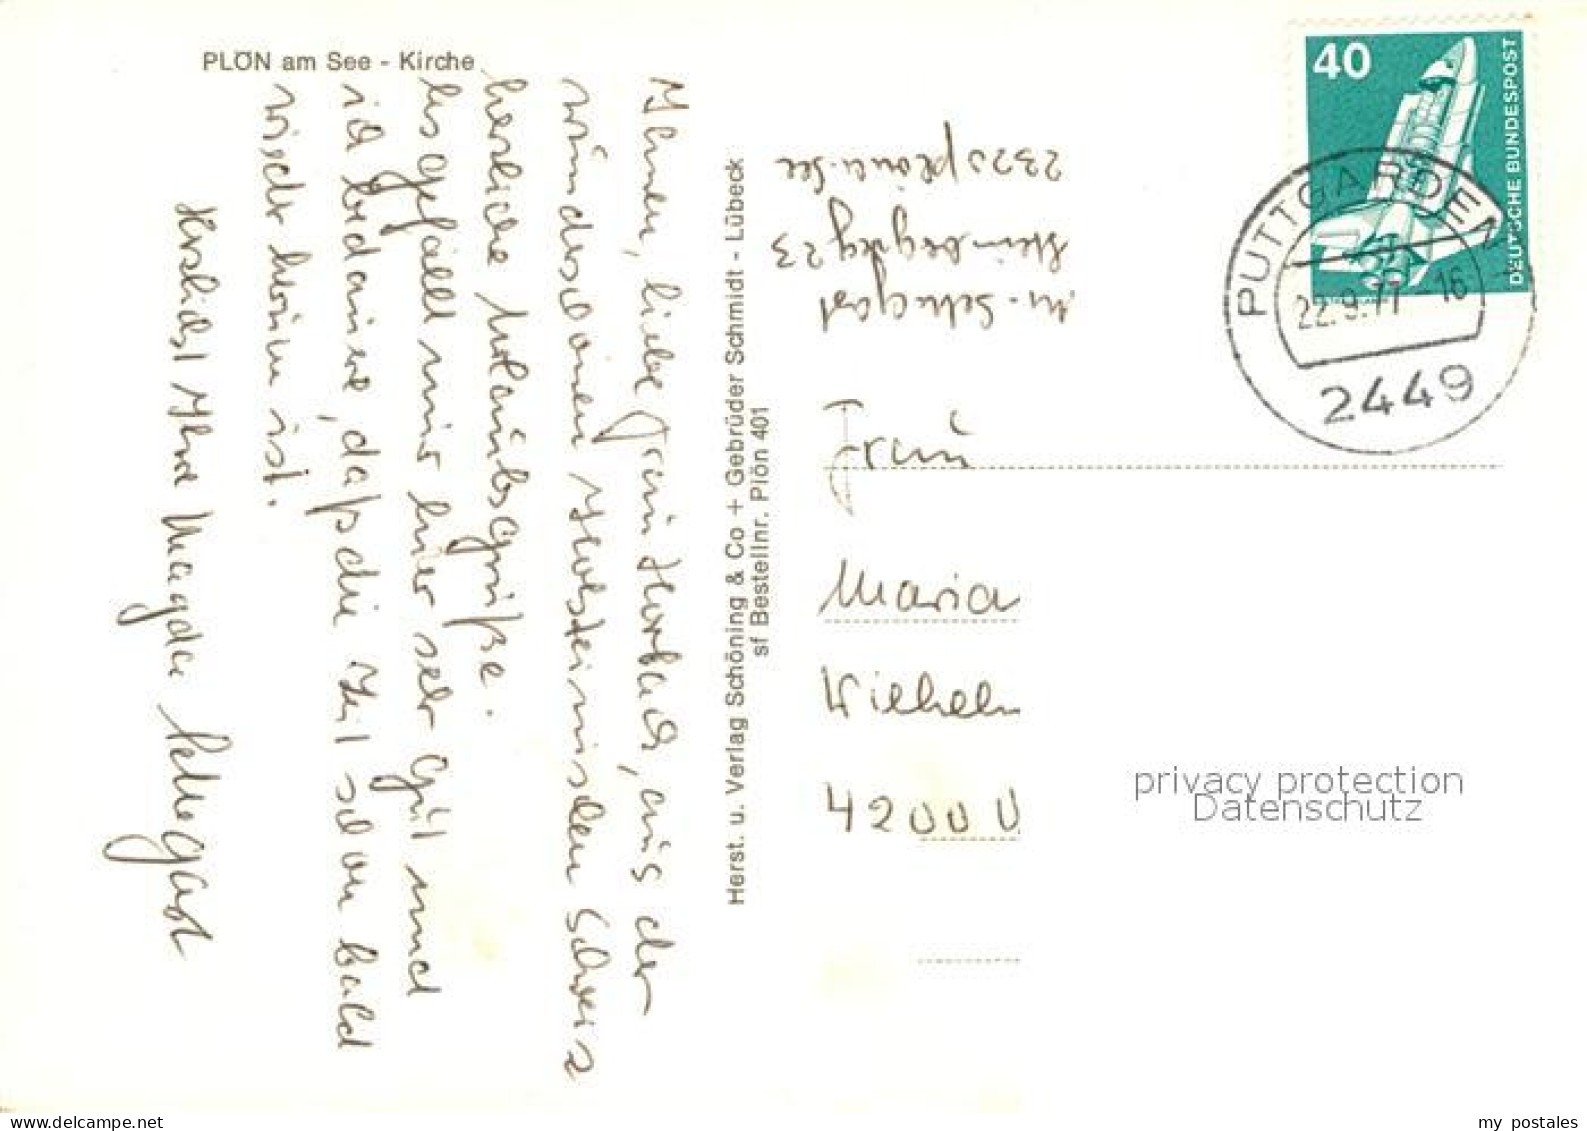 PLÖN am See - Kirche
Ihnen, liebe Frau Horbach, aus der
wunderschönen Holsteinischen Schweiz
herzliche Urlaubsgrüße.
Es gefällt mir hier sehr gut und
ich bedauere, daß die Zeit schon bald
wieder herum ist.
Herzlichst Ihre Magda Schlegast
Herst. u. Verlag Schöning & Co + Gebrüder Schmidt - Lübeck
sf Bestellnr. Plön 401
23
2320 Plöner-See
40
DEUTSCHE BUNDESPOST
PUTTGARDEN
22.9.77-16
2449
Frau
Maria
Wilhelm
4200 O
privacy protection
Datenschutz
delcampe.net
my postales